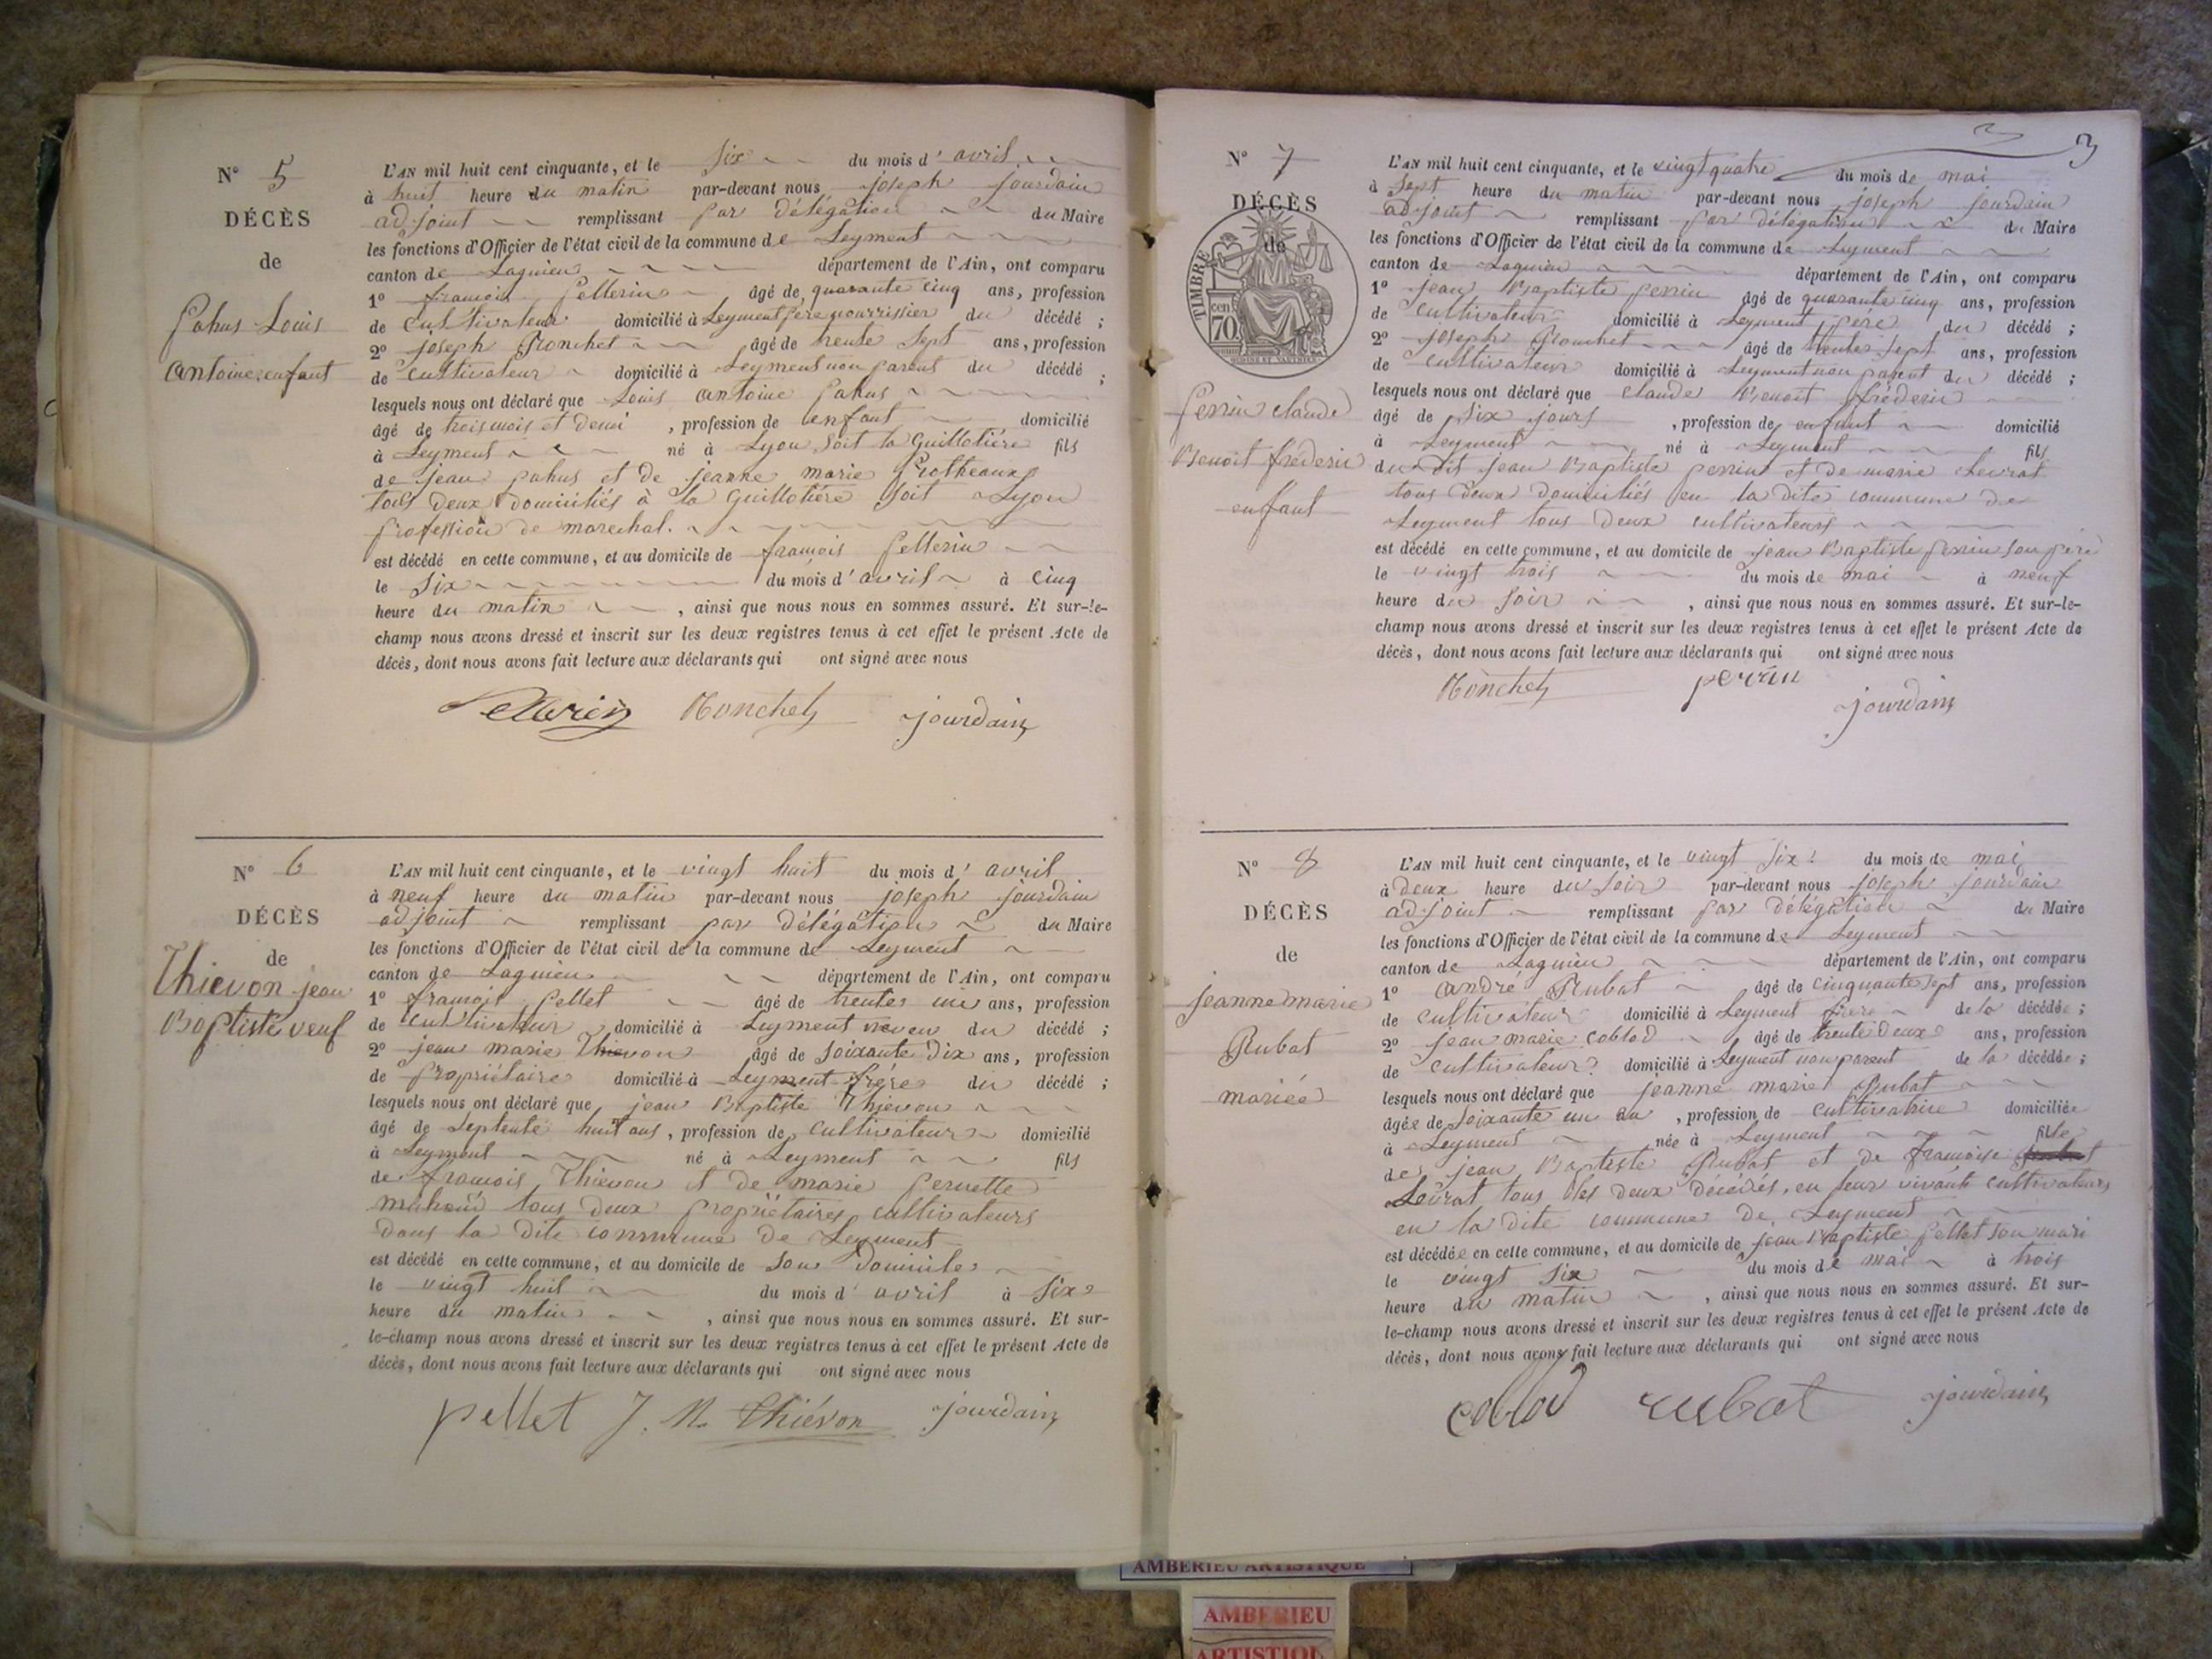 N° 5
DÉCÈS
de
Pahus Louis
Antoine enfant
L'AN mil huit cent cinquante, et le six du mois d'avril
à huit heure du matin par-devant nous joseph jourdain
adjoint remplissant par délégation du Maire
les fonctions d'Officier de l'état civil de la commune de Leyment
canton de Lagnieu département de l'Ain, ont comparu
1° françois Pellerin âgé de quarante cinq ans, profession
de cultivateur domicilié à Leyment père nourrissier du décédé ;
2° joseph Ronchet âgé de trente sept ans, profession
de cultivateur domicilié à Leyment non parent du décédé ;
lesquels nous ont déclaré que Louis antoine Pahus
âgé de trois mois et demi , profession de enfant domicilié
à Leyment né à Lyon soit la Guillotière fils
de jean pahus et de jeanne marie Protheaux
tous deux domiciliés à la Guillotière soit Lyon
profession de marechal.
est décédé en cette commune, et au domicile de françois Pellerin
le six du mois d'avril à cinq
heure du matin , ainsi que nous nous en sommes assuré. Et sur-le-
champ nous avons dressé et inscrit sur les deux registres tenus à cet effet le présent Acte de
décès, dont nous avons fait lecture aux déclarants qui ont signé avec nous
Pellerin Ronchet jourdain
N° 6
DÉCÈS
de
Thievon jean
Baptiste veuf
L'AN mil huit cent cinquante, et le vingt huit du mois d'avril
à neuf heure du matin par-devant nous joseph jourdain
adjoint remplissant par délégation du Maire
les fonctions d'Officier de l'état civil de la commune de Leyment
canton de Lagnieu département de l'Ain, ont comparu
1° françois Pellet âgé de trente un ans, profession
de cultivateur domicilié à Leyment neveu du décédé ;
2° jean marie Thievon âgé de soixante dix ans, profession
de propriétaire domicilié à Leyment frère du décédé ;
lesquels nous ont déclaré que jean Baptiste Thievon
âgé de septente huit ans, profession de cultivateur domicilié
à Leyment né à Leyment fils
de françois Thievon et de marie Pernette
tous deux propriétaires cultivateurs
dans la dite commune de Leyment
est décédé en cette commune, et au domicile de son domicile
le vingt huit du mois d'avril à six
heure du matin , ainsi que nous nous en sommes assuré. Et sur-
le-champ nous avons dressé et inscrit sur les deux registres tenus à cet effet le présent Acte de
décès, dont nous avons fait lecture aux déclarants qui ont signé avec nous
pellet J. M. Thiévon jourdain
3
N° 7
DÉCÈS
de
TIMBRE
70 cen
Perrin claude
Benoit fréderic
enfant
L'AN mil huit cent cinquante, et le vingt quatre du mois de mai
à sept heure du matin par-devant nous joseph jourdain
adjoint remplissant par délégation du Maire
les fonctions d'Officier de l'état civil de la commune de Leyment
canton de Lagnieu département de l'Ain, ont comparu
1° jean Baptiste perrin âgé de quarante cinq ans, profession
de cultivateur domicilié à Leyment père du décédé ;
2° joseph Ronchet âgé de trente sept ans, profession
de cultivateur domicilié à Leyment non parent du décédé ;
lesquels nous ont déclaré que claude Benoit fréderic
âgé de six jours , profession de enfant domicilié
à Leyment né à Leyment fils
du dit jean Baptiste perrin et de marie Levrat
tous deux domiciliés en la dite commune de
Leyment tous deux cultivateurs
est décédé en cette commune, et au domicile de jean Baptiste perrin son père
le vingt trois du mois de mai à neuf
heure du soir , ainsi que nous nous en sommes assuré. Et sur-le-
champ nous avons dressé et inscrit sur les deux registres tenus à cet effet le présent Acte de
décès, dont nous avons fait lecture aux déclarants qui ont signé avec nous
Ronchet perrin
jourdain
N° 8
DÉCÈS
de
jeanne marie
Rubat
mariée
L'AN mil huit cent cinquante, et le vingt six du mois de mai
à deux heure du soir par-devant nous joseph jourdain
adjoint remplissant par délégation du Maire
les fonctions d'Officier de l'état civil de la commune de Leyment
canton de Lagnieu département de l'Ain, ont comparu
1° andré Rubat âgé de cinquante sept ans, profession
de cultivateur domicilié à Leyment frère de la décédée ;
2° jean marie coblod âgé de trente deux ans, profession
de cultivateur domicilié à Leyment non parent de la décédée ;
lesquels nous ont déclaré que jeanne marie Rubat
âgée de soixante un an , profession de cultivatrice domiciliée
à Leyment née à Leyment fille
de jean Baptiste Rubat et de françoise
Levrat tous les deux décédés, en leur vivants cultivateurs
en la dite commune de Leyment
est décédée en cette commune, et au domicile de jean Baptiste Pellet son mari
le vingt six du mois de mai à trois
heure du matin , ainsi que nous nous en sommes assuré. Et sur-
le-champ nous avons dressé et inscrit sur les deux registres tenus à cet effet le présent Acte de
décès, dont nous avons fait lecture aux déclarants qui ont signé avec nous
coblod rubat jourdain
AMBERIEU ARTISTIQUE
AMBERIEU
ARTISTIQU